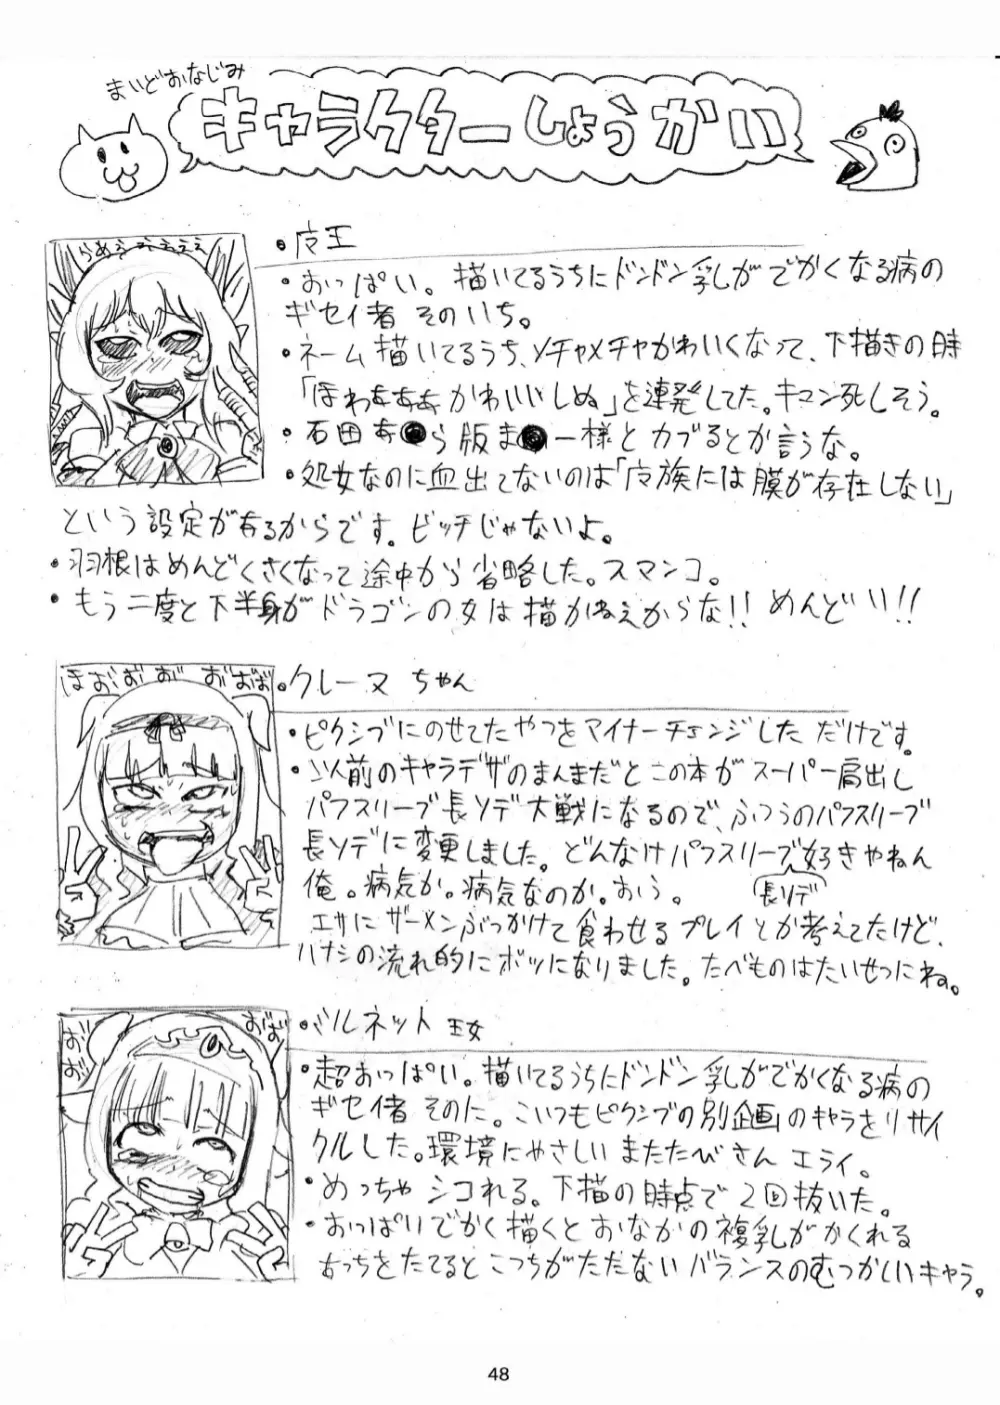 まいどおなじみ
キャラクターしょうかい
らめぇぇぇぇぇ
・皮王
・おっぱい。描いてるうちにドンドン乳がでかくなる病の
ギセイ者 そのいち。
・ネーム描いてるうち、メチャメチャかわいくなって、下描きの時
「ほわぁぁぁかわいいしぬ」を連発してた。キュン死しそう。
・石田あ●ら版ま●一様とカブるとか言うな。
・処女なのに血出てないのは「皮族には膜が存在しない」
という設定があるからです。ビッチじゃないよ。
・羽根はめんどくさくなって途中から省略した。スマンコ。
・もう二度と下半身がドラゴンの女は描かねえからな!! めんどい!!
ほおおお おおば
・クレーヌちゃん
・ピクシブにのせてたやつをマイナーチェンジしただけです。
・以前のキャラデザのまんまだとこの本がスーパー肩出し
パフスリーブ長ソデ大戦になるので、ふつうのパフスリーブ
長ソデに変更しました。どんなけパフスリーブ好きやねん
長ソデ
俺。病気か。病気なのか。おう。
エサにザーメンぶっかけて食わせるプレイとか考えてたけど、
ハナシの流れ的にボツになりました。たべものはたいせつにね。
おお おば
おお
・バルネット王女
・超おっぱい。描いてるうちにドンドン乳がでかくなる病の
ギセイ者 そのに。こいつもピクシブの別企画のキャラをリサイ
クルした。環境にやさしいまたたびさんエライ。
・めっちゃシコれる。下描の時点で2回抜いた。
・おっぱいでかく描くとおなかの複乳がかくれる
あっちをたてるとこっちがたたないバランスのむつかしいキャラ。
48